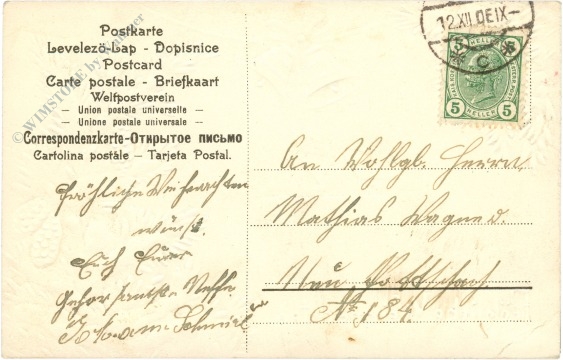 Postkarte
Levelező-Lap - Dopisnice
Postcard
Carte postale - Briefkaart
Weltpostverein
- Union postale universelle -
- Unione postale universale -
Correspondenzkarte-Открытое письмо
Cartolina postale - Tarjeta Postal.
© WIMSTORE by
12.XII.
C
5 HELLER 5
5 HELLER 5
Fröhliche Weihnachten
wünscht
Euch Euer
Gehorsamster Neffe
An Wohlgb. Herrn
Mathias Wagner
Neu, Pottschach
No 184